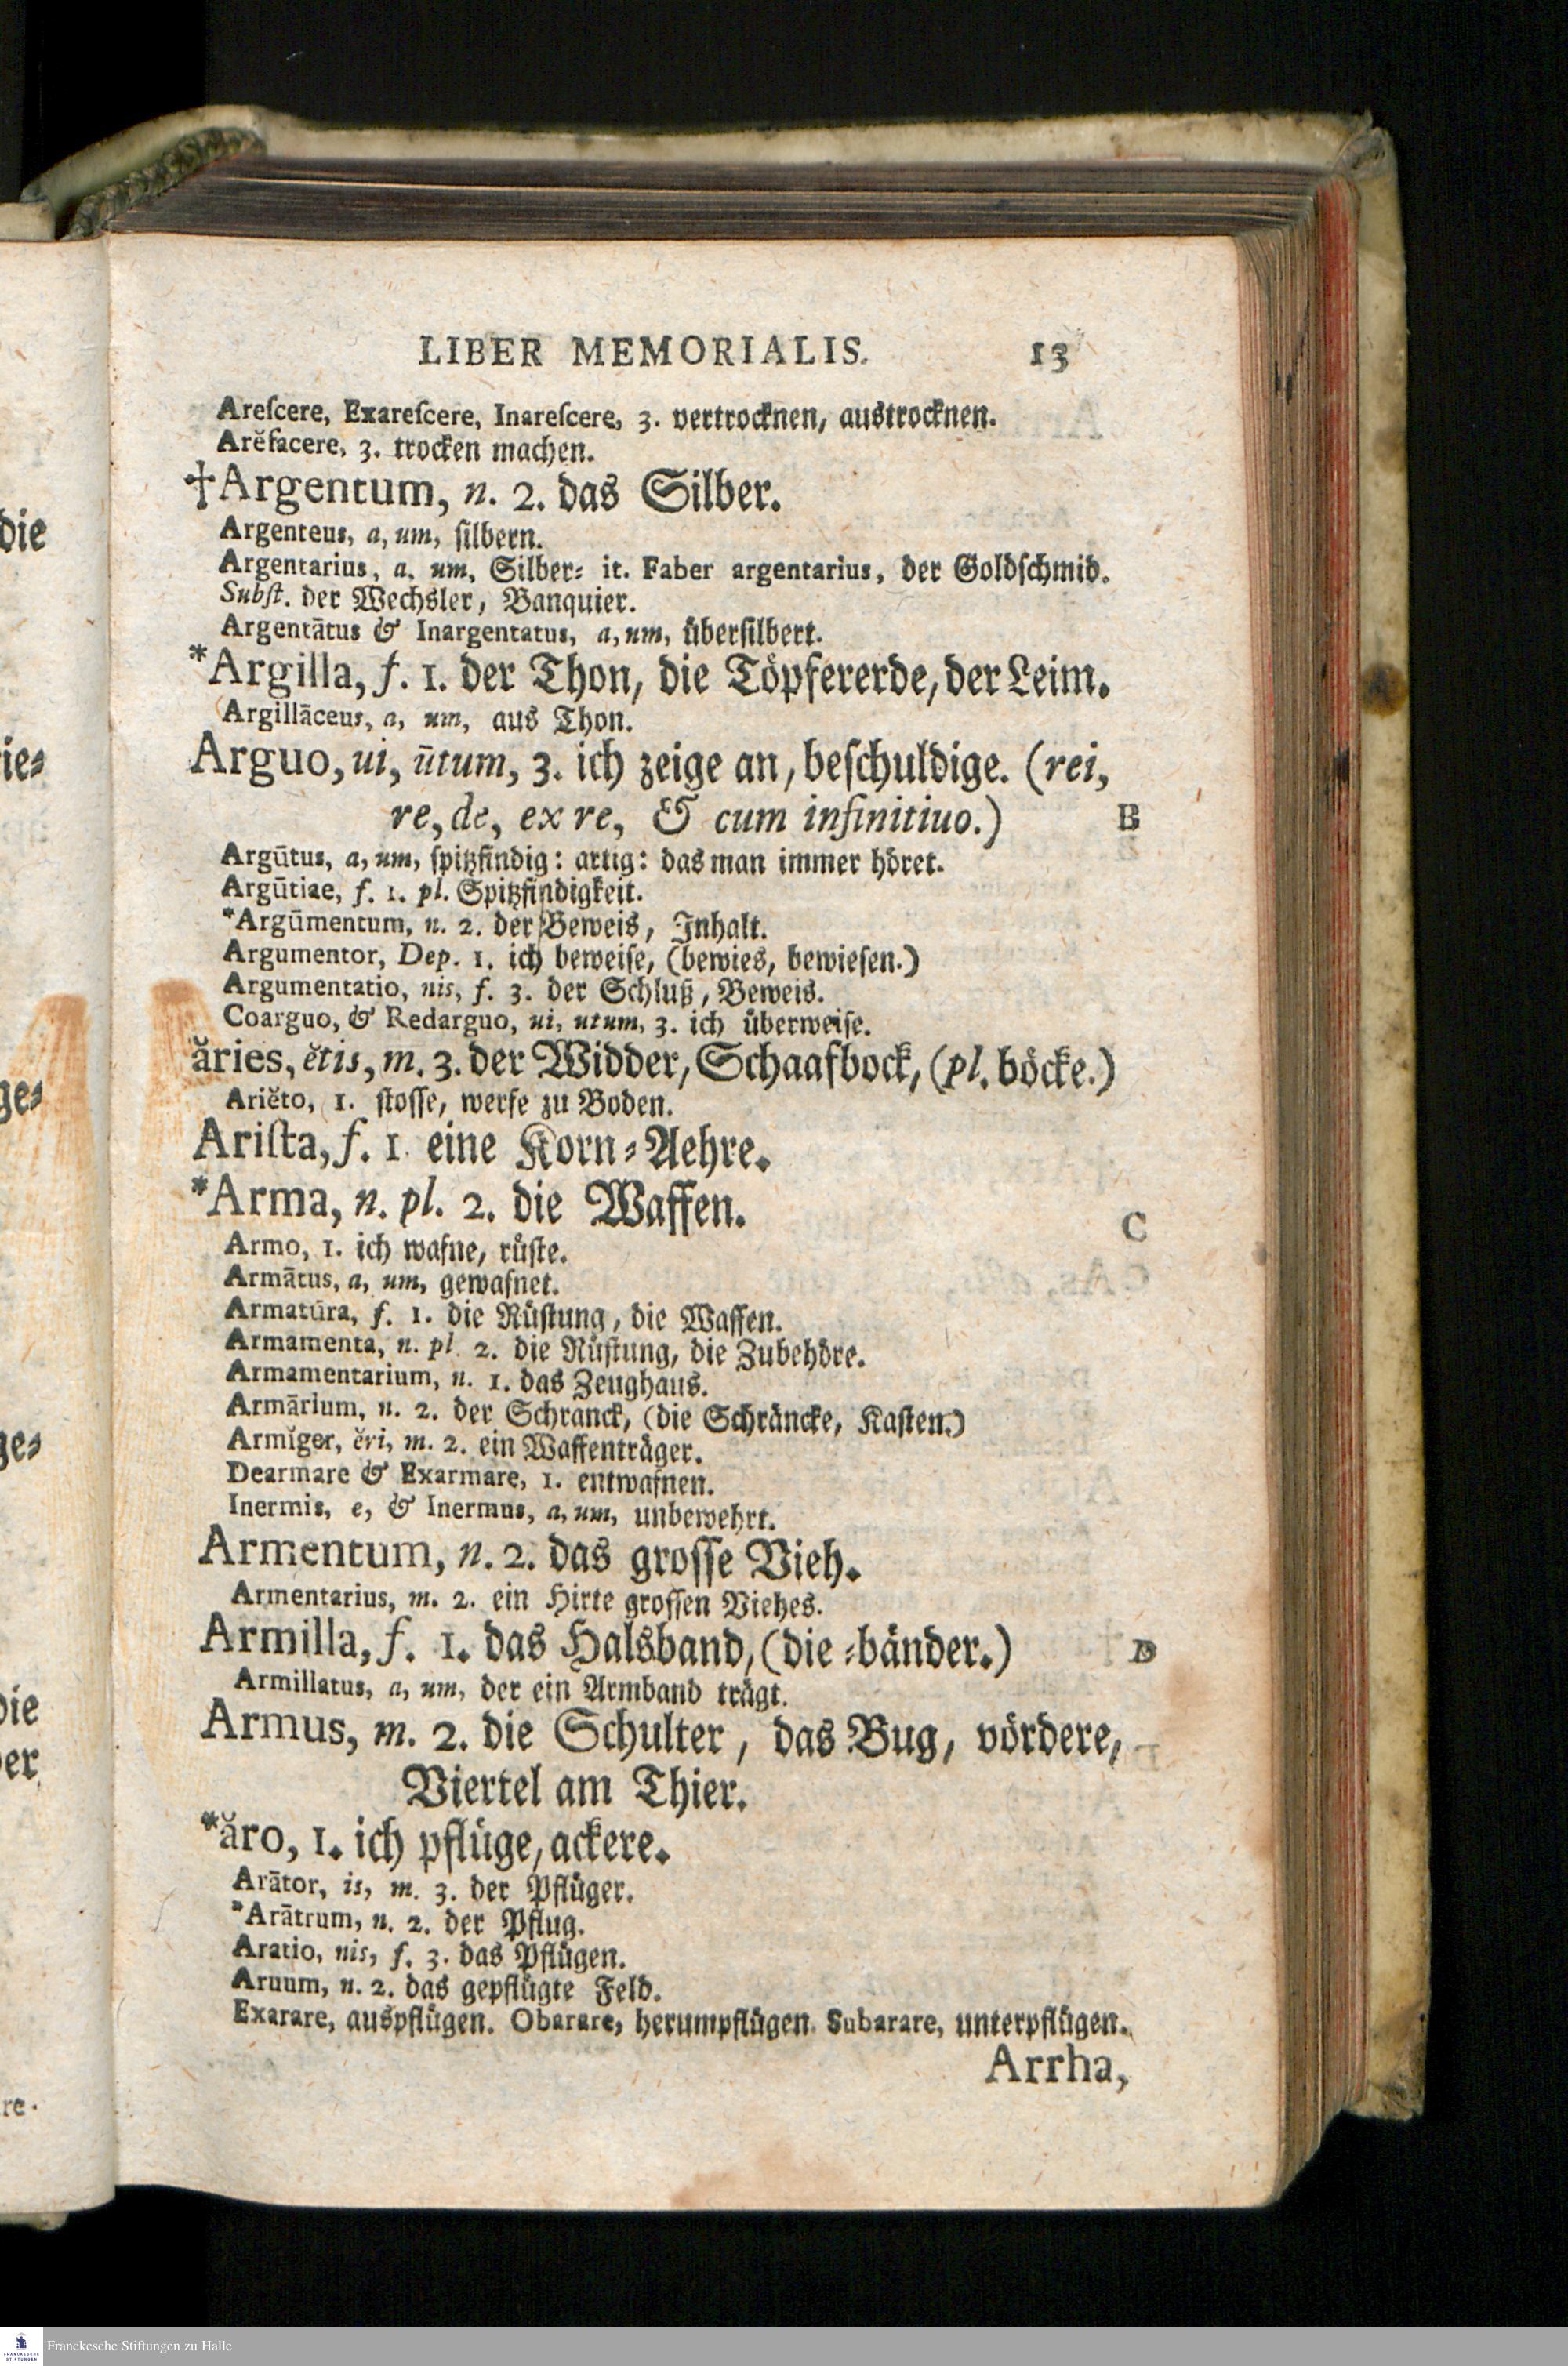 LIBER MEMORIALIS. 13
Areſcere, Exareſcere, Inareſcere, 3. vertrocknen, austrocknen.
Arĕfacere, 3. trocken machen.
†Argentum, n. 2. das Silber.
Argenteus, a, um, ſilbern.
Argentarius, a, um, Silber⸗ it. Faber argentarius, der Goldſchmid.
Subſt. der Wechsler, Banquier.
Argentātus & Inargentatus, a, um, überſilbert.
*Argilla, f. 1. der Thon, die Töpfererde, der Leim.
Argillāceus, a, um, aus Thon.
Arguo, ui, ūtum, 3. ich zeige an, beſchuldige. (rei,
re, de, ex re, & cum infinitiuo.) B
Argūtus, a, um, ſpitzfindig: artig: das man immer höret.
Argūtiae, f. 1. pl. Spitzfindigkeit.
*Argūmentum, n. 2. der Beweis, Inhalt.
Argumentor, Dep. 1. ich beweiſe, (bewies, bewieſen.)
Argumentatio, nis, f. 3. der Schluß, Beweis.
Coarguo, & Redarguo, ui, utum, 3. ich überweiſe.
ăries, ĕtis, m. 3. der Widder, Schaafbock, (pl. böcke.)
Ariĕto, 1. ſtoſſe, werfe zu Boden.
Ariſta, f. 1 eine Korn⸗Aehre.
*Arma, n. pl. 2. die Waffen.
C
Armo, 1. ich wafne, rüſte.
Armātus, a, um, gewafnet.
Armatūra, f. 1. die Rüſtung, die Waffen.
Armamenta, n. pl. 2. die Rüſtung, die Zubehöre.
Armamentarium, n. 1. das Zeughaus.
Armārium, n. 2. der Schranck, (die Schräncke, Kaſten.)
Armĭger, ĕri, m. 2. ein Waffenträger.
Dearmare & Exarmare, 1. entwafnen.
Inermis, e, & Inermus, a, um, unbewehrt.
Armentum, n. 2. das groſſe Vieh.
Armentarius, m. 2. ein Hirte groſſen Viehes.
Armilla, f. 1. das Halsband, (die ⸗bänder.) D
Armillatus, a, um, der ein Armband trägt.
Armus, m. 2. die Schulter, das Bug, vördere,
Viertel am Thier.
*ăro, 1. ich pflüge, ackere.
Arātor, is, m. 3. der Pflüger.
*Arātrum, n. 2. der Pflug.
Aratio, nis, f. 3. das Pflügen.
Aruum, n. 2. das gepflügte Feld.
Exarare, auspflügen. Obarare, herumpflügen. Subarare, unterpflügen.
Arrha,
die
ie⸗
ge⸗
ge⸗
die
er
re.
Franckesche Stiftungen zu Halle